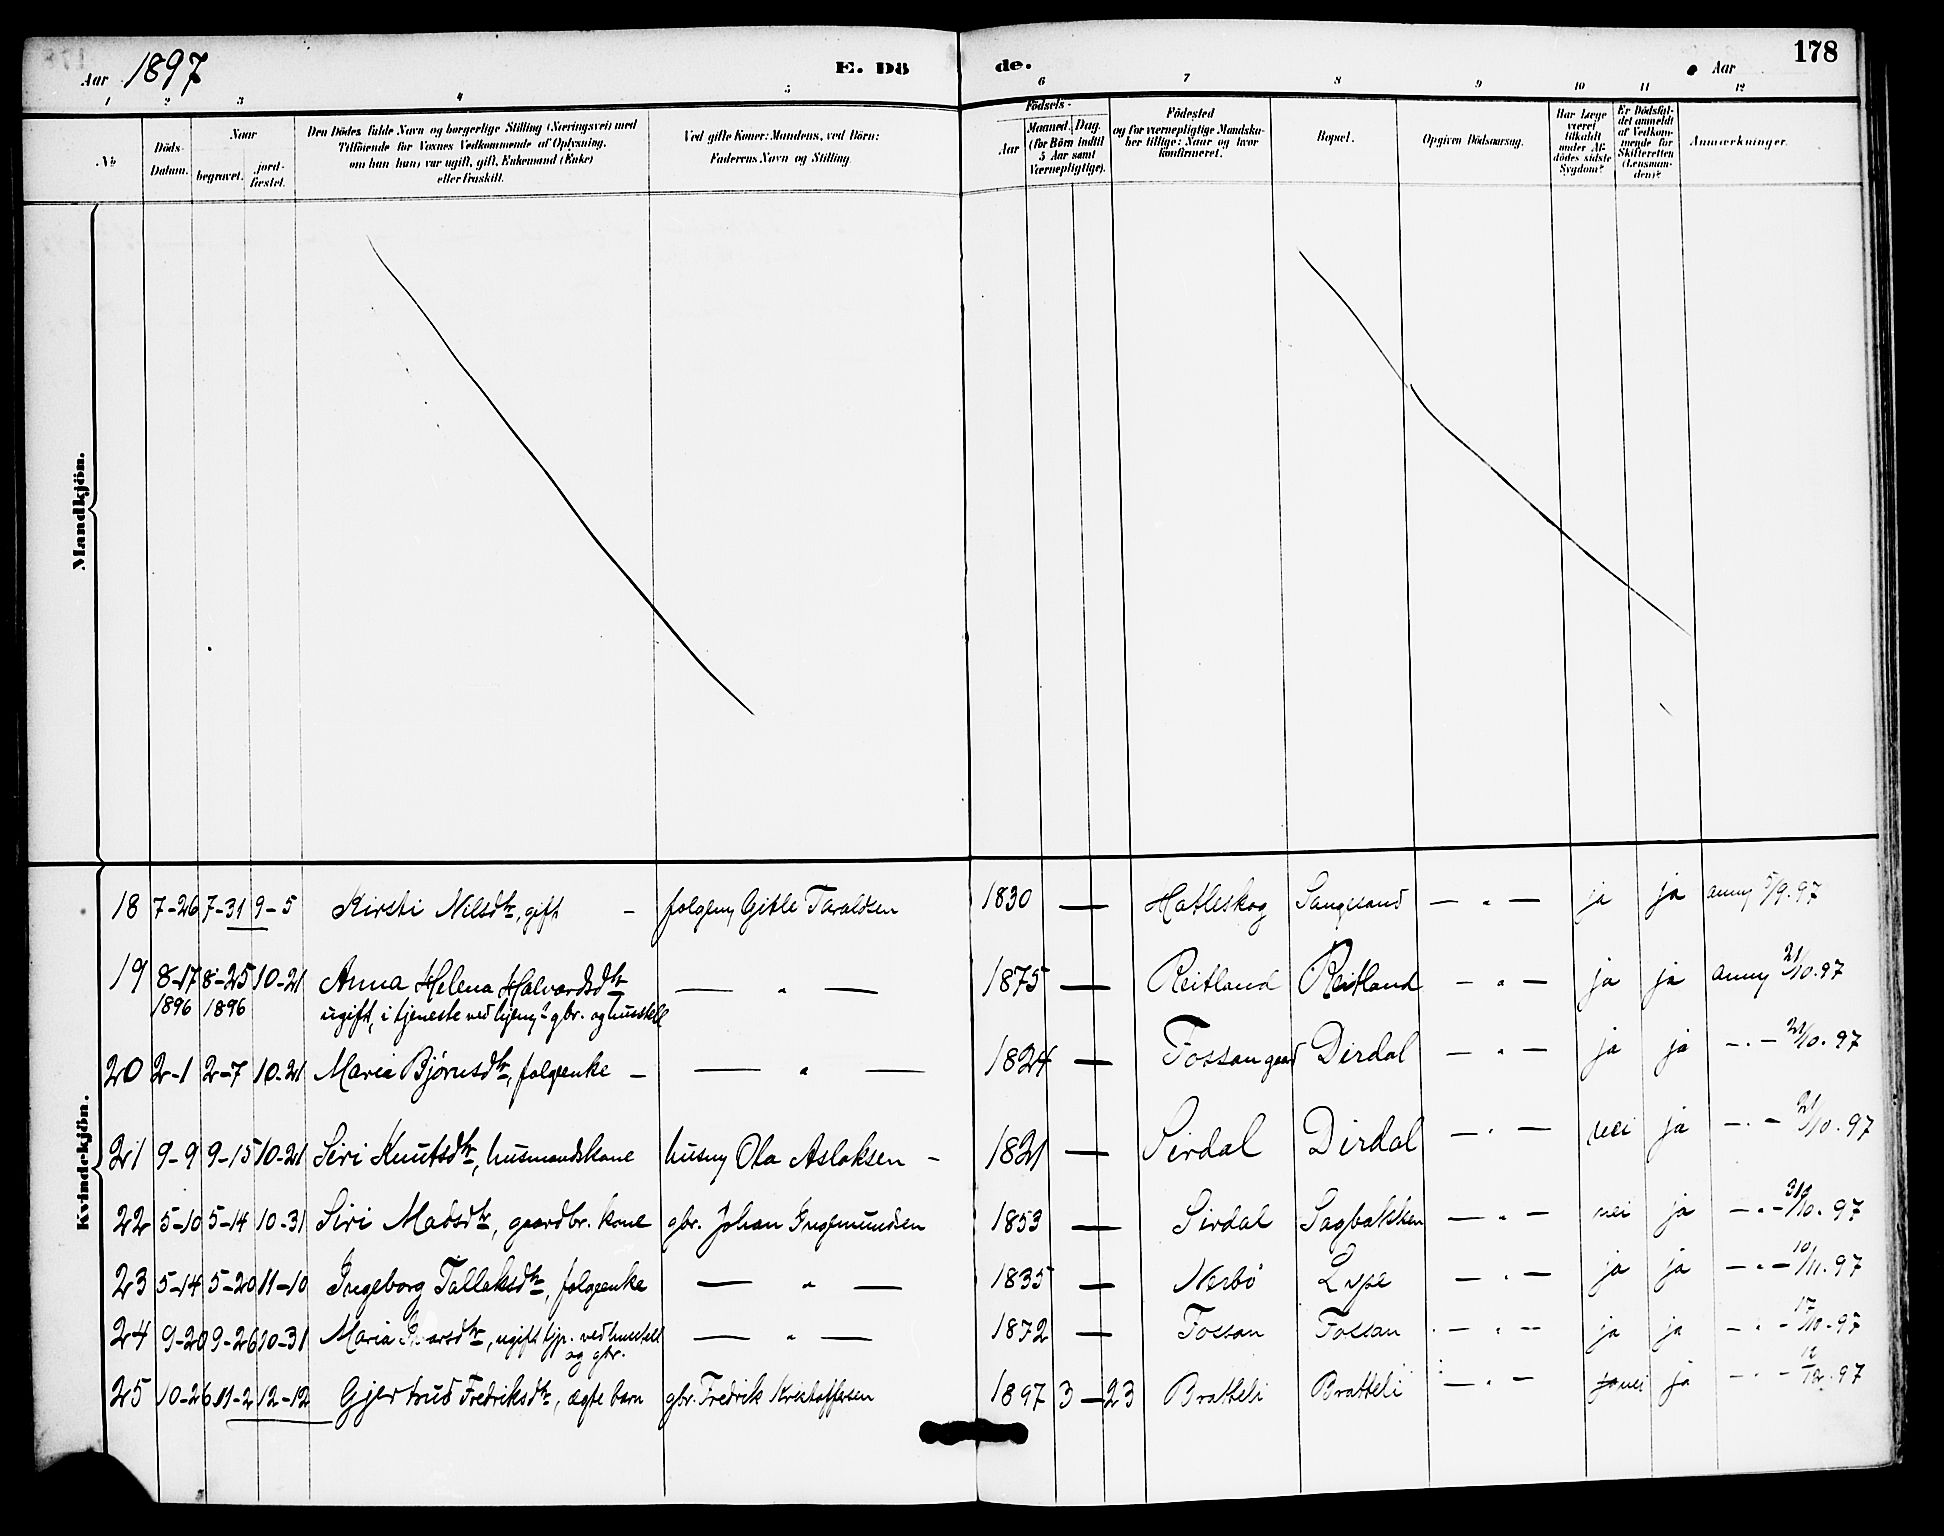 Aar 1897 E. Dö de. Aar 178
1 2 3 4 5 6 7 8 9 10 11 12
No
Döds-Datum.
Naar
begravet.
jord-fæstet.
Den Dödes fulde Navn og borgerlige Stilling (Næringsvei) med
Tilföiende for Voxnes Vedkommende af Oplysning,
om han (hun) var ugift, gift, Enkemand (Enke)
eller fraskilt.
Ved gifte Koner: Mandens, ved Börn:
Faderens Navn og Stilling.
Födsels-
Aar
Maaned. Dag.
(for Börn indtil
5 Aar samt
Værnepligtige).
Födested
og for værnepligtige Mandska-
ber tillige: Naar og hvor
konfirmeret.
Bopæl.
Opgiven Dödsaarsag.
Har Læge
været
tilkaldt
under Af-
dödes sidste
Sygdom?
Er Dödsfal-
det anmeldt
af Vedkom-
mende for
Skifteretten
(Lensman-
den)?
Anmærkninger.
Mandkjön.
Kvindekjön.
18 7-26 7-31 9-5 Kirsti Nilsdtr, gift — Gitle Taraldsen 1830 — Hatleskog Sangesand — " — ja ja 5/9.97
19 8-17 8-25 10-21 Anna Helena Halvardsdtr — " — 1875 — Reitland Reitland — " — ja ja 21/10.97
1896 1896 ugift, i tjeneste ved gbr. og husstell
20 2-1 2-7 10-21 Maria Bjørnsdtr, folgeenke — — " — 1824 — Fossan Dirdal — " — ja ja — " — 21/10.97
21 9-9 9-15 10-21 Siri Knutsdtr, husmandskone Ola Aslaksen — 1821 — Sirdal Dirdal — " — nei ja — " — 21/10.97
22 5-10 5-14 10-31 Siri Madsdtr, gaardbr. kone gbr. Johan Ingemundsen 1853 — Sirdal Sagbakken — " — nei ja — " — 31/10.97
23 5-14 5-20 11-10 Ingeborg Tallaksdtr, folgeenke — " — 1835 — Nerbö — " — ja ja — " — 10/11.97
24 9-20 9-26 10-31 Maria Ivarsdtr, ugift tjr. ved husstell — " — 1872 — Fossan Fossan — " — ja ja — " — 17/10.97
og gbr.
25 10-26 11-2 12-12 Gjertrud Fredriksdtr, ægte barn gbr. Fredrik Kristoffersen 1897 3 — 23 Bratteli Bratteli — " — ja nei ja — " — 12/12.97